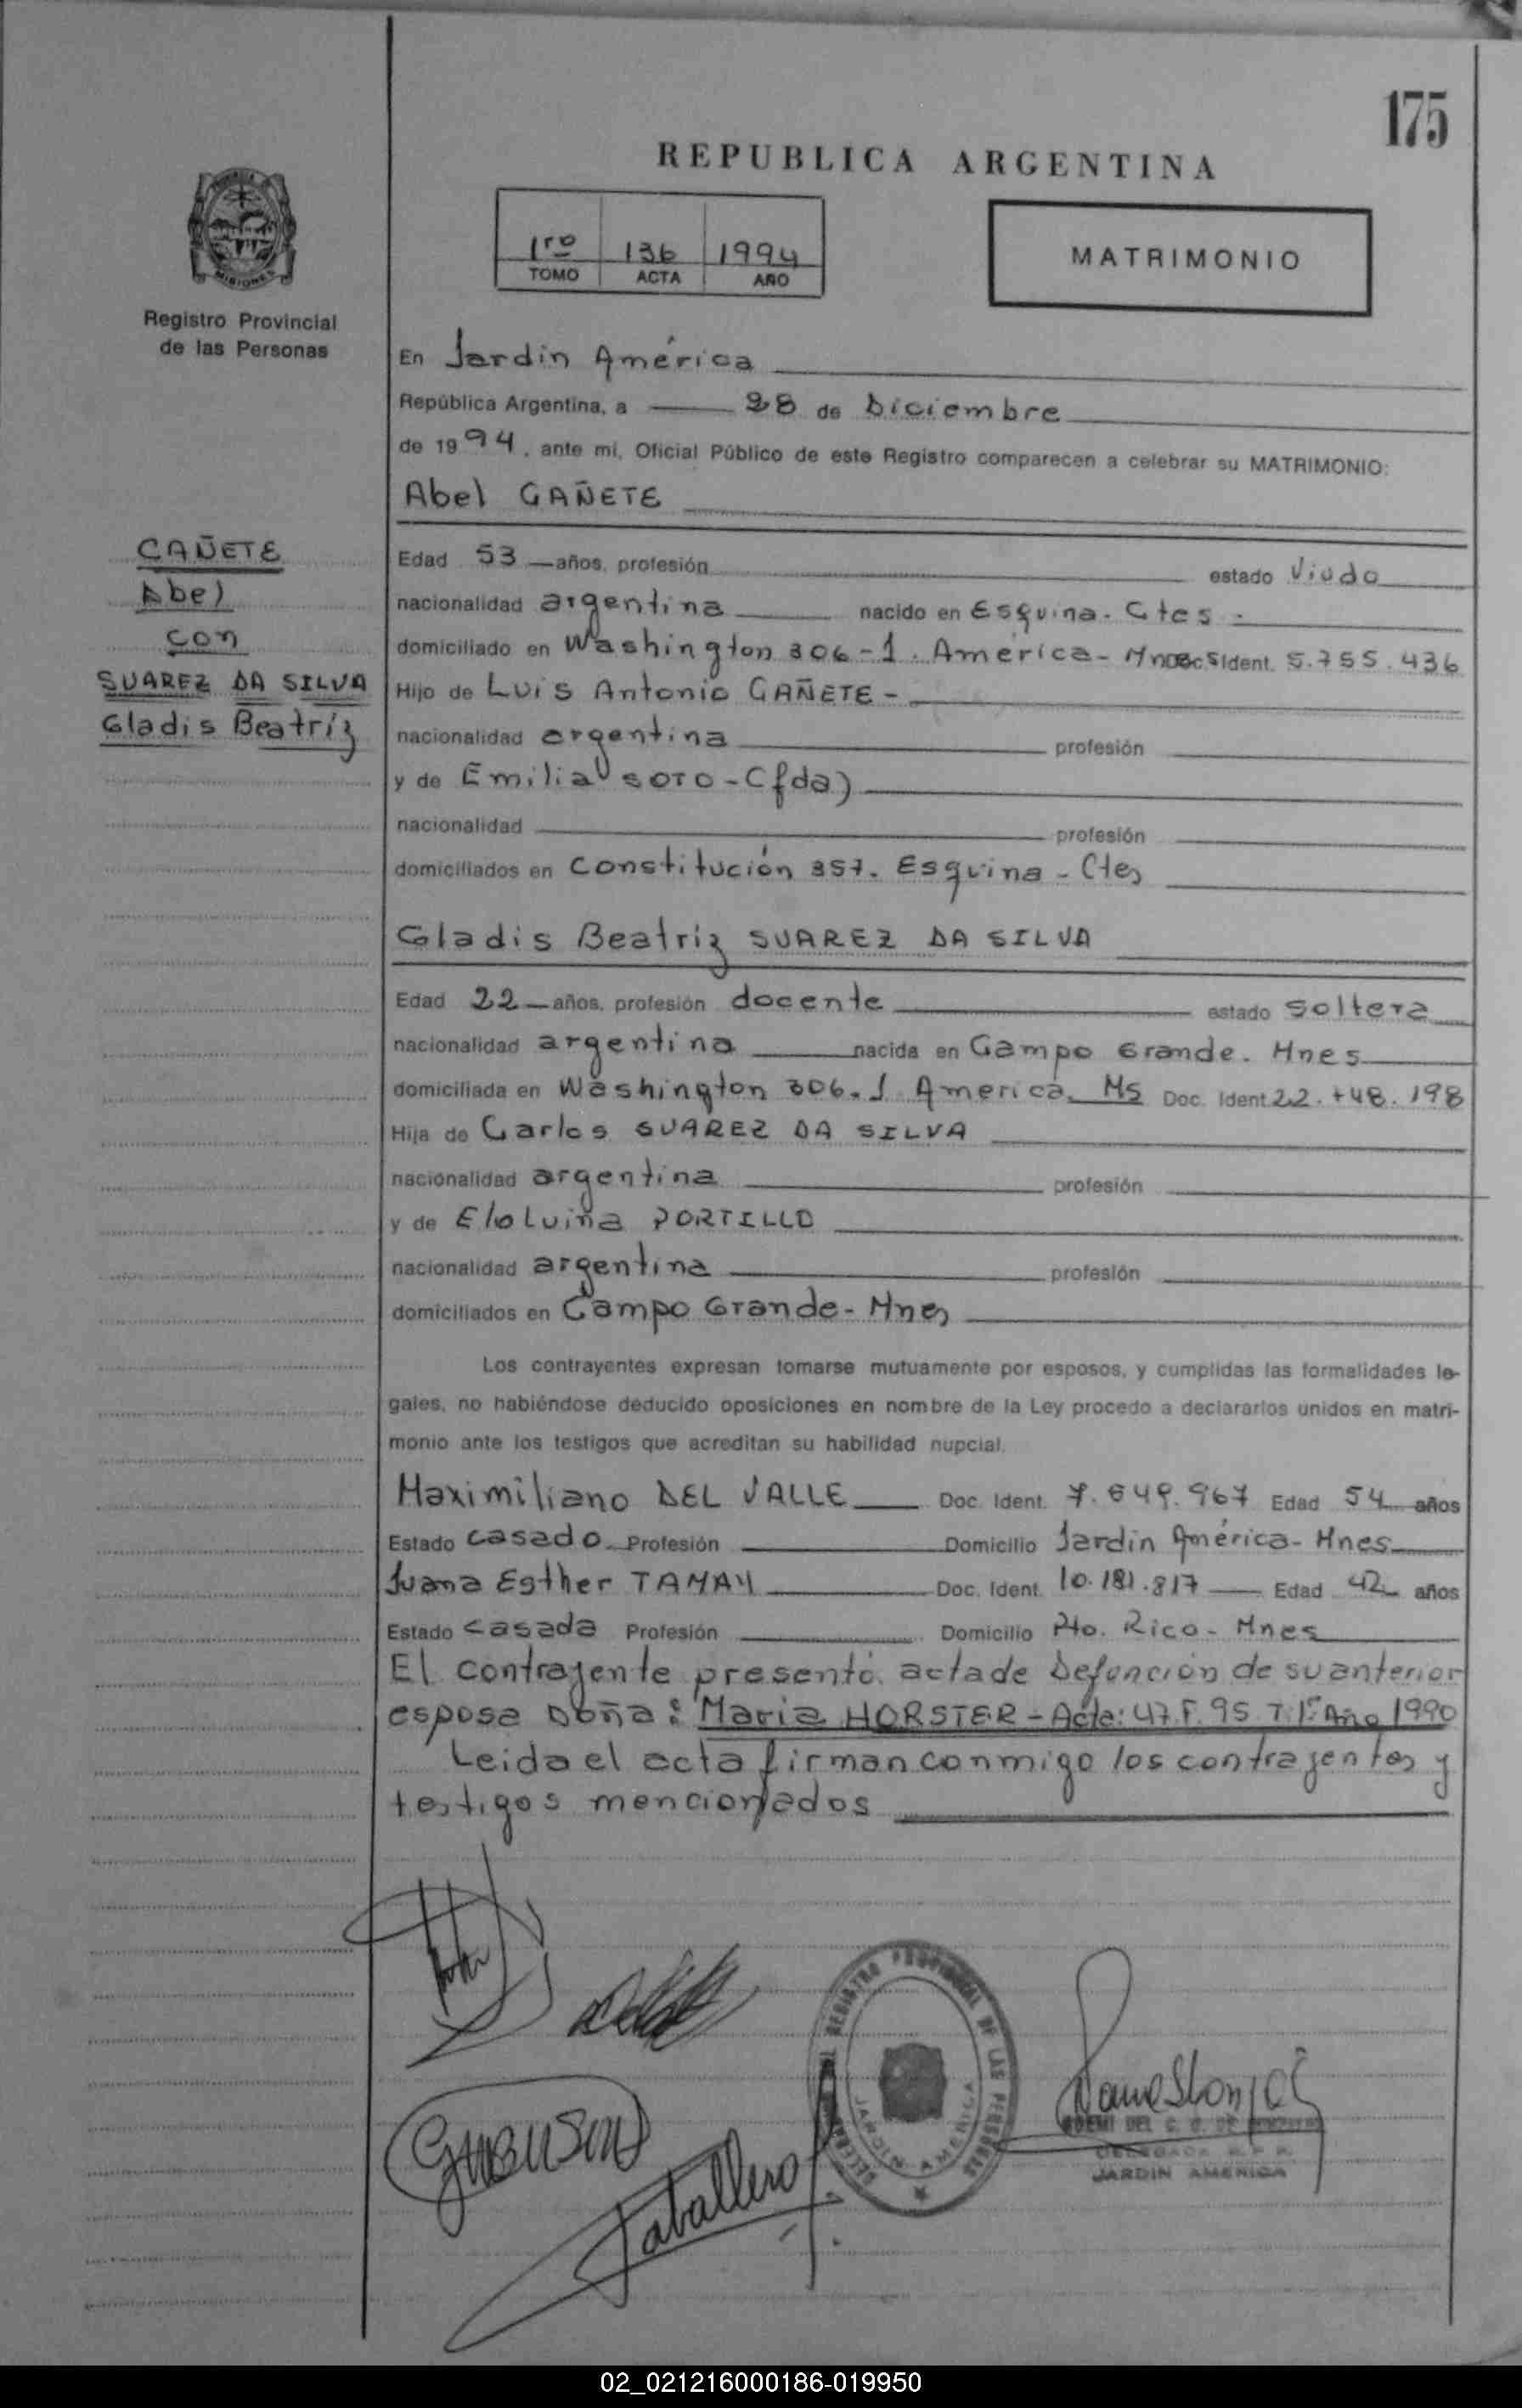 175
REPUBLICA ARGENTINA
1ro 136 1994
TOMO ACTA AÑO
MATRIMONIO
MISIONES
Registro Provincial
de las Personas
En Jardin América
República Argentina, a 28 de Diciembre
de 1994, ante mi, Oficial Público de este Registro comparecen a celebrar su MATRIMONIO:
Abel CAÑETE
CAÑETE
Abel
con
SUAREZ DA SILVA
Gladis Beatríz
Edad 53 años, profesión estado Viudo
nacionalidad argentina nacido en Esquina - Ctes -
domiciliado en Washington 306 - J. América - Mnes Doc. Ident. 5.755.436
Hijo de Luis Antonio CAÑETE -
nacionalidad argentina profesión
y de Emilia SOTO - (fda)
nacionalidad profesión
domiciliados en Constitución 357. Esquina - Ctes
Gladis Beatriz SUAREZ DA SILVA
Edad 22 años, profesión docente estado soltera
nacionalidad argentina nacida en Campo Grande. Mnes
domiciliada en Washington 306. J. America. Ms Doc. Ident. 22.748.198
Hija de Carlos SUAREZ DA SILVA
nacionalidad argentina profesión
y de PORTILLO
nacionalidad argentina profesión
domiciliados en Campo Grande - Mnes
Los contrayentes expresan tomarse mutuamente por esposos, y cumplidas las formalidades le-
gales, no habiéndose deducido oposiciones en nombre de la Ley procedo a declararlos unidos en matri-
monio ante los testigos que acreditan su habilidad nupcial.
Maximiliano DEL VALLE Doc. Ident. Edad 54 años
Estado casado Profesión Domicilio Jardin América - Mnes
Juana Esther TAMAY Doc. Ident. 10.181.817 Edad 42 años
Estado casada Profesión Domicilio Pto. Rico - Mnes
El contrayente presentó acta de Defunción de su anterior
esposa Doña: Maria HORSTER - Acta: 47. F. 95 T: 1º Año 1990
Leida el acta firman conmigo los contrayentes y
testigos mencionados
REGISTRO PROVINCIAL DE LAS PERSONAS
JARDIN AMERICA
Caballero
NOEMI DEL C. G. DE
DELEGADA R. P. P.
JARDIN AMERICA
02_021216000186-019950